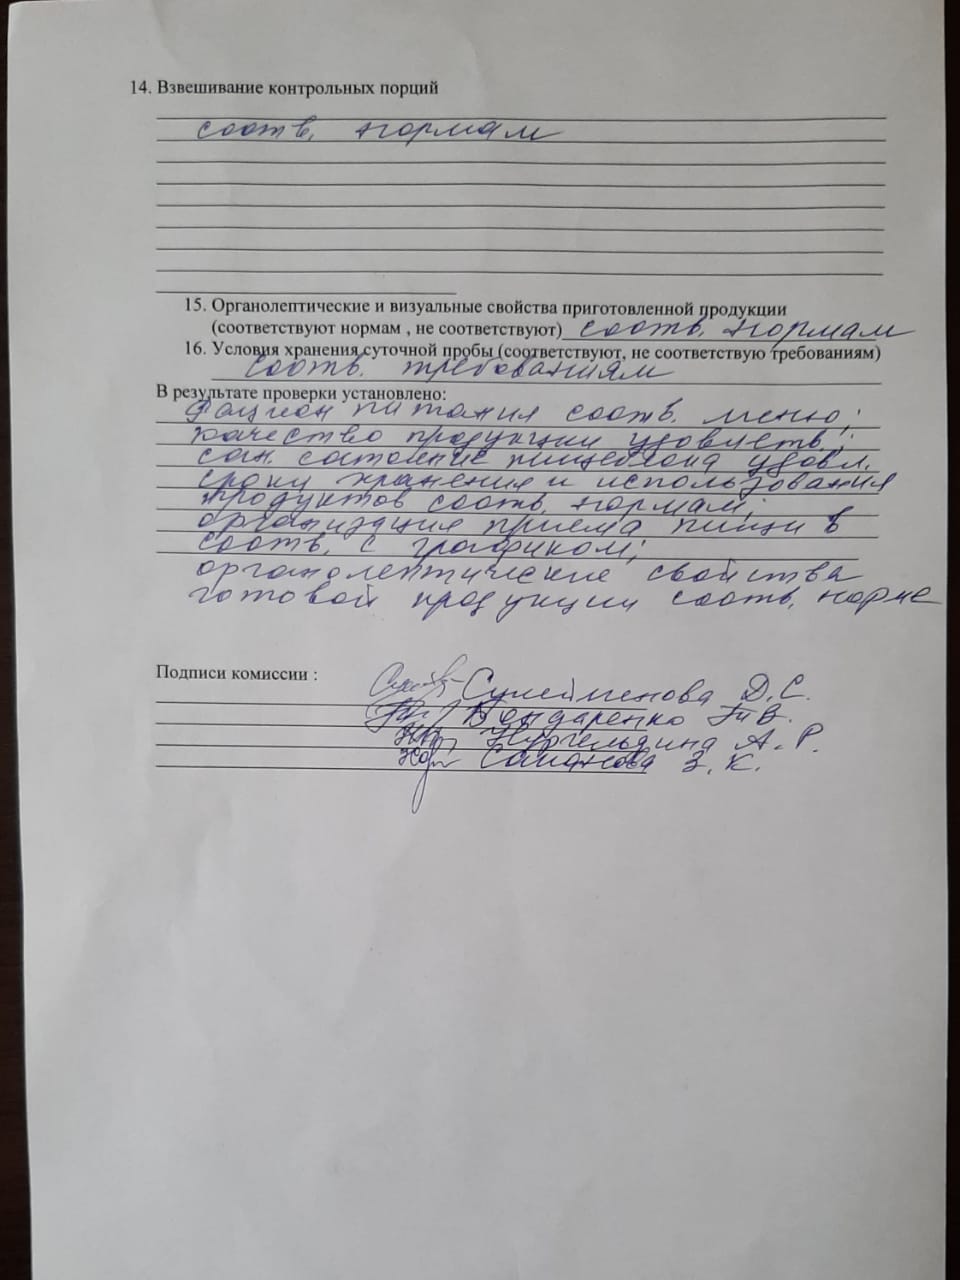 14. Взвешивание контрольных порций
соотв. нормам
15. Органолептические и визуальные свойства приготовленной продукции
(соответствуют нормам , не соответствуют) соотв. нормам
16. Условия хранения суточной пробы (соответствуют, не соответствую требованиям)
соотв. требованиям
В результате проверки установлено:
Рацион питания соотв. меню;
качество продукции удовлетв.;
сан. состояние пищеблока удовл.
сроки хранения и использования
продуктов соотв. нормам;
организация приема пищи в
соотв. с графиком;
органолептические свойства
готовой продукции соотв. норме
Подписи комиссии :
Сулейменова Д.С.
Бондаренко Т.В.
Нургельдина А.Р.
Саманова З.К.